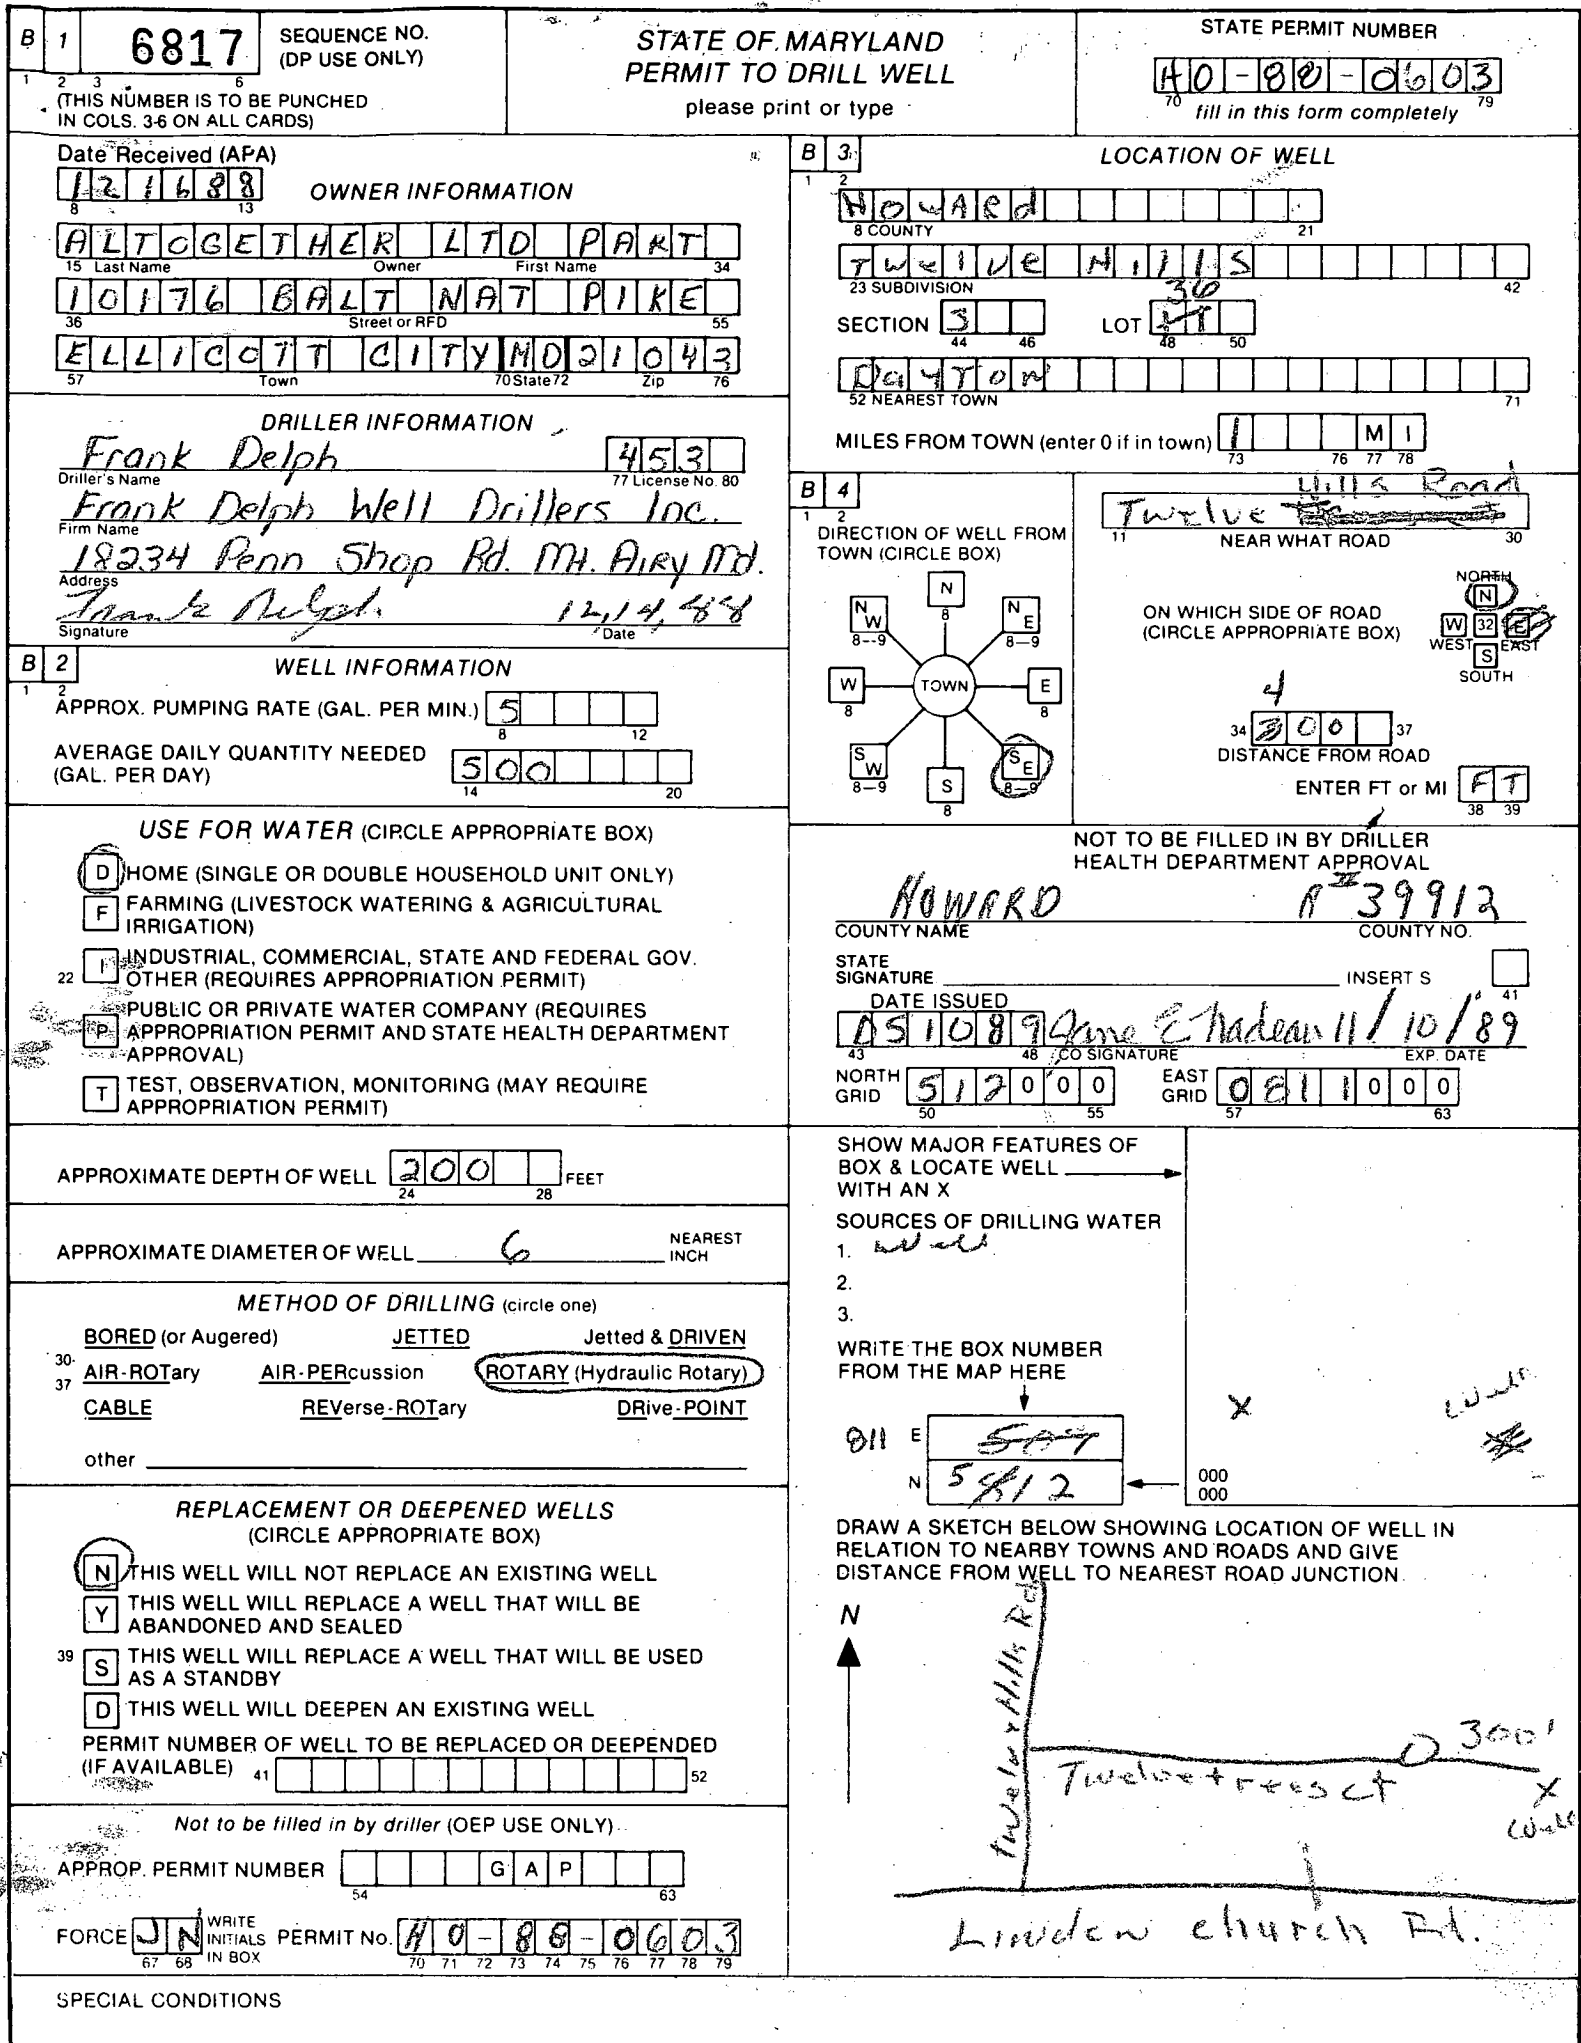 B 1 6817 SEQUENCE NO.
(DP USE ONLY)
1 2 3 6
(THIS NUMBER IS TO BE PUNCHED
IN COLS. 3-6 ON ALL CARDS)
STATE OF MARYLAND
PERMIT TO DRILL WELL
please print or type
STATE PERMIT NUMBER
HO-88-0603
70 79
fill in this form completely
Date Received (APA)
121688
8 13
OWNER INFORMATION
ALTOGETHER LTD PART
15 Last Name Owner First Name 34
10176 BALT NAT PIKE
36 Street or RFD 55
ELLICOTT CITY MD 21043
57 Town 70 State 72 Zip 76
DRILLER INFORMATION
Frank Delph 453
Driller's Name 77 License No. 80
Frank Delph Well Drillers Inc.
Firm Name
18234 Penn Shop Rd. Mt. Airy Md.
Address
Frank Delph 12,14,88
Signature Date
B 2 WELL INFORMATION
1 2
APPROX. PUMPING RATE (GAL. PER MIN.) 5
8 12
AVERAGE DAILY QUANTITY NEEDED
(GAL. PER DAY) 500
14 20
USE FOR WATER (CIRCLE APPROPRIATE BOX)
D HOME (SINGLE OR DOUBLE HOUSEHOLD UNIT ONLY)
F FARMING (LIVESTOCK WATERING & AGRICULTURAL
IRRIGATION)
22 I INDUSTRIAL, COMMERCIAL, STATE AND FEDERAL GOV.
OTHER (REQUIRES APPROPRIATION PERMIT)
P PUBLIC OR PRIVATE WATER COMPANY (REQUIRES
APPROPRIATION PERMIT AND STATE HEALTH DEPARTMENT
APPROVAL)
T TEST, OBSERVATION, MONITORING (MAY REQUIRE
APPROPRIATION PERMIT)
APPROXIMATE DEPTH OF WELL 200 FEET
24 28
APPROXIMATE DIAMETER OF WELL 6 NEAREST
INCH
METHOD OF DRILLING (circle one)
BORED (or Augered) JETTED Jetted & DRIVEN
30-
37
AIR-ROTary AIR-PERcussion ROTARY (Hydraulic Rotary)
CABLE REVerse-ROTary DRive-POINT
other
REPLACEMENT OR DEEPENED WELLS
(CIRCLE APPROPRIATE BOX)
N THIS WELL WILL NOT REPLACE AN EXISTING WELL
Y THIS WELL WILL REPLACE A WELL THAT WILL BE
ABANDONED AND SEALED
39 S THIS WELL WILL REPLACE A WELL THAT WILL BE USED
AS A STANDBY
D THIS WELL WILL DEEPEN AN EXISTING WELL
PERMIT NUMBER OF WELL TO BE REPLACED OR DEEPENDED
(IF AVAILABLE) 41 52
Not to be filled in by driller (OEP USE ONLY)
APPROP. PERMIT NUMBER G A P
54 63
FORCE JN WRITE
INITIALS
IN BOX
67 68
PERMIT No. HO-88-0603
70 71 72 73 74 75 76 77 78 79
SPECIAL CONDITIONS
B 3 LOCATION OF WELL
1 2
HOWARd
8 COUNTY 21
Twelve Hills
23 SUBDIVISION 42
SECTION 3 LOT 36
44 46 48 50
DayTon
52 NEAREST TOWN 71
MILES FROM TOWN (enter 0 if in town) 1 M I
73 76 77 78
B 4
1 2
DIRECTION OF WELL FROM
TOWN (CIRCLE BOX)
N
8
N W
8--9
N E
8--9
W
8
TOWN
E
8
S W
8--9
S
8
S E
8--9
Hills Road
Twelve
11 NEAR WHAT ROAD 30
ON WHICH SIDE OF ROAD
(CIRCLE APPROPRIATE BOX)
NORTH
N
W 32 E
WEST EAST
S
SOUTH
4
34 300 37
DISTANCE FROM ROAD
ENTER FT or MI F T
38 39
NOT TO BE FILLED IN BY DRILLER
HEALTH DEPARTMENT APPROVAL
HOWARD 39912
COUNTY NAME COUNTY NO.
STATE
SIGNATURE INSERT S
41
DATE ISSUED
051089 Jane E Nadeau 11/10/89
43 48 CO SIGNATURE EXP. DATE
NORTH
GRID 512000
50 55
EAST
GRID 0811000
57 63
SHOW MAJOR FEATURES OF
BOX & LOCATE WELL
WITH AN X
SOURCES OF DRILLING WATER
1. Well
2.
3.
WRITE THE BOX NUMBER
FROM THE MAP HERE
811 E
N 512
X
Well
000
000
DRAW A SKETCH BELOW SHOWING LOCATION OF WELL IN
RELATION TO NEARBY TOWNS AND ROADS AND GIVE
DISTANCE FROM WELL TO NEAREST ROAD JUNCTION
N
Twelve Hills Rd
300'
Twelvetrees ct
X
Well
Linden church Rd.